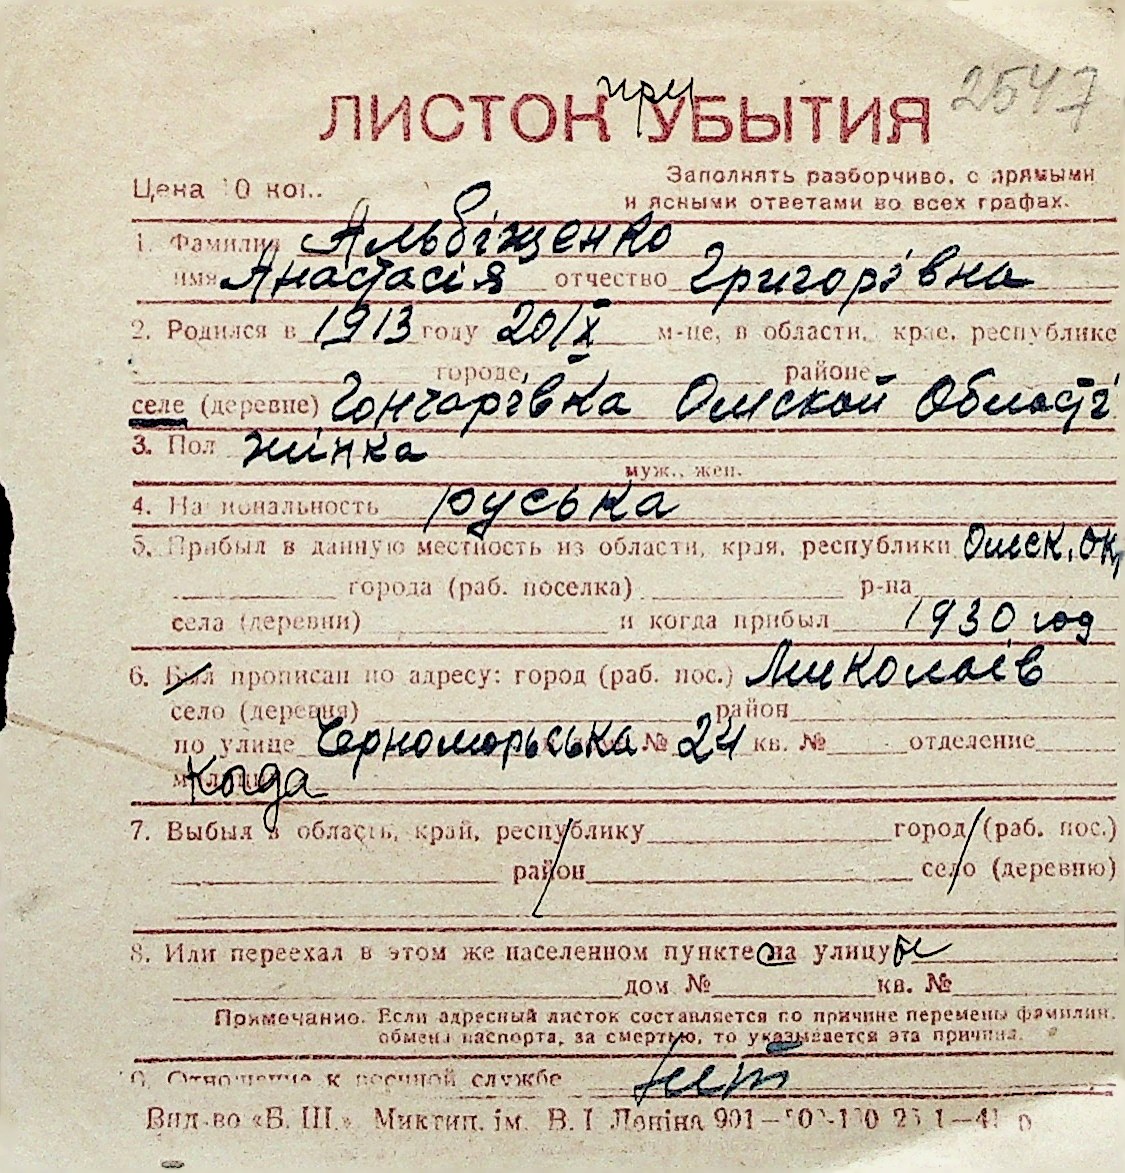 при 2547
ЛИСТОК УБЫТИЯ
Цена 10 коп.
Заполнять разборчиво, с прямыми
и ясными ответами во всех графах.
1. Фамилия Альбіщенко
имя Анастасія отчество Григорівна
2. Родился в 1913 году 20/X м-це, в области, крае, республике
городе районе
селе (деревне) Гончарівка Омской Області
3. Пол жінка
муж., жен.
4. Национальность руська
5. Прибыл в данную местность из области, края, республики Омск. ок,
города (раб. поселка) р-на
села (деревни) и когда прибыл 1930 год
6. Был прописан по адресу: город (раб. пос.) Миколаів
село (деревня) район
по улице Черноморьська № 24 кв. № отделение
Когда
7. Выбыл в область, край, республику город (раб. пос.)
район село (деревню)
8. Или переехал в этом же населенном пункте на улицу ы
дом № кв. №
Примечание. Если адресный листок составляется по причине перемены фамилии,
обмена паспорта, за смертью, то указывается эта причина.
9. Отношение к военной службе нет
Вид-во «Б. Ш.» Миктип. ім. В. І Леніна 901